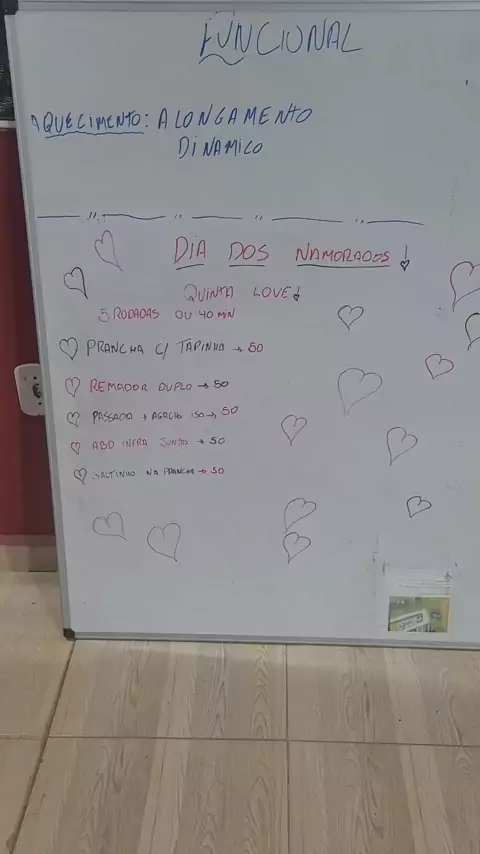 FUNCIONAL
AQUECIMENTO: ALONGAMENTO
DINAMICO
DIA DOS NAMORADOS!
QUINTA LOVE!
5 RODADAS OU 40 MIN
PRANCHA C/ TAPINHA → 50
REMADOR DUPLO → 50
PASSADA + AGACHO ISO → 50
ABD INFRA JUNTOS → 50
SALTINHO NA PRANCHA → 50